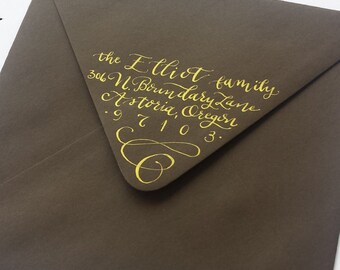 the Elliot family
306 N. Boundary Lane
Astoria, Oregon
· 9 7 1 0 3 ·